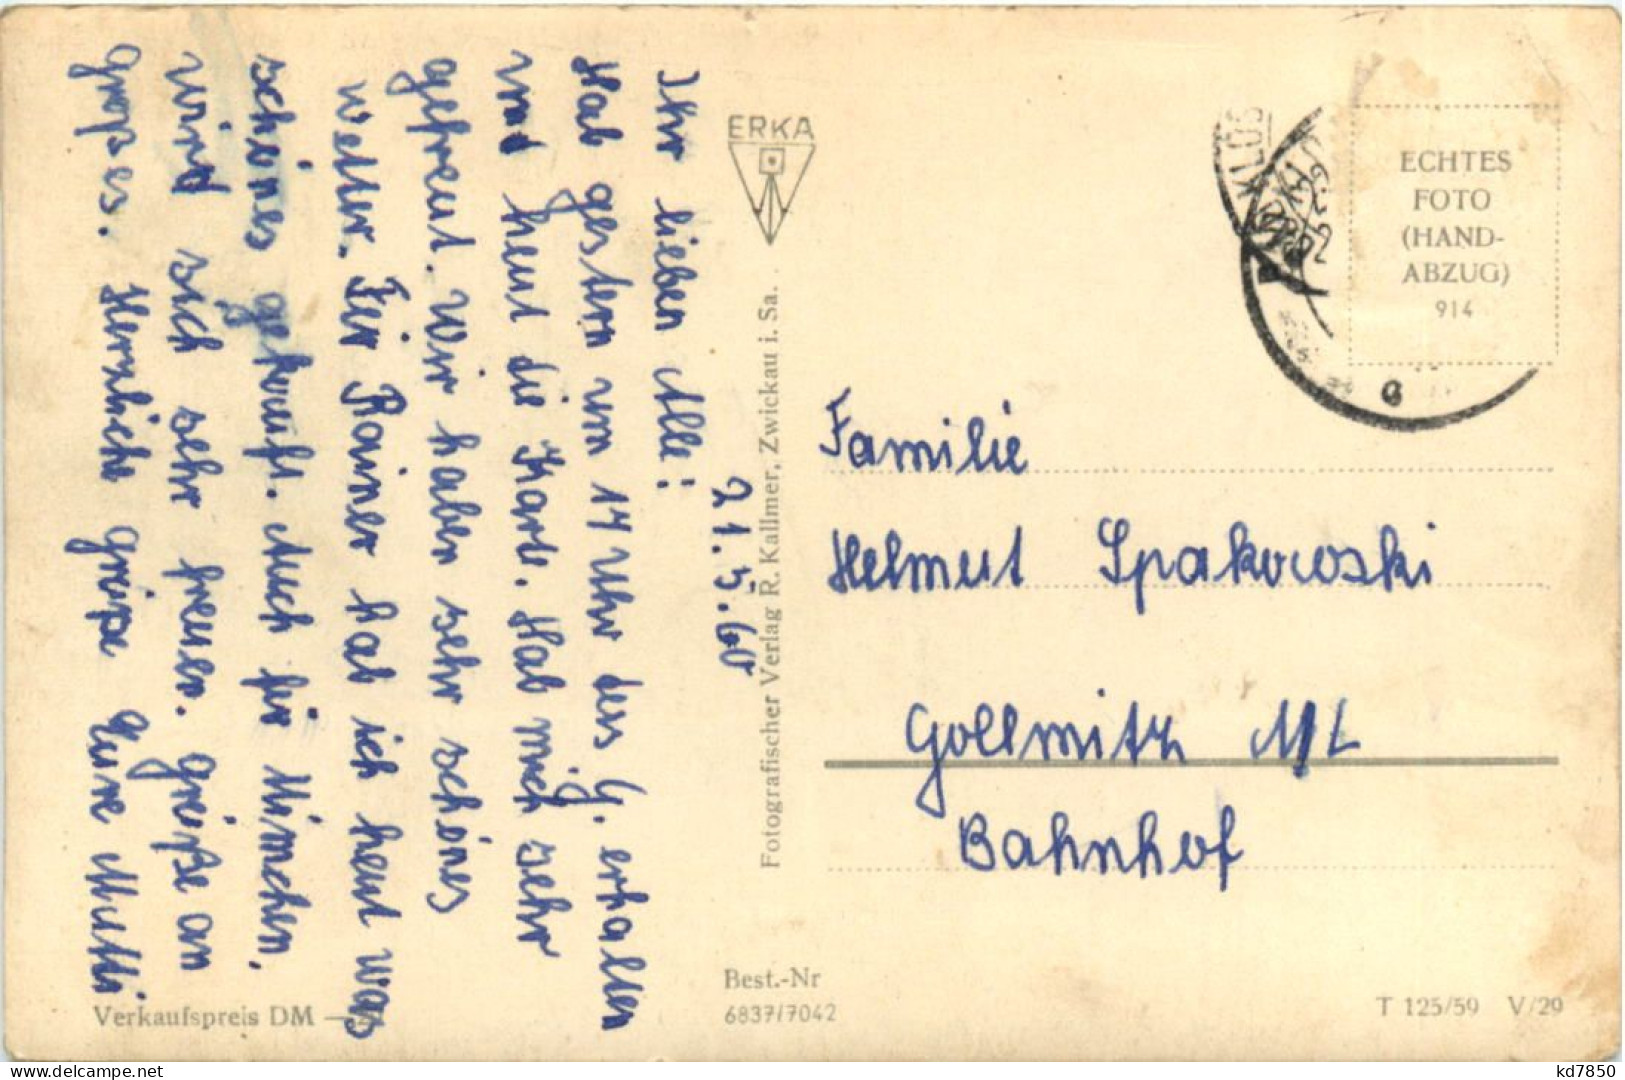 21.5.60
Ihr lieben Alle!
Hab gestern um 17 Uhr das G. erhalten
und heut die Karte. Hab mich sehr
gefreut. Wir haben sehr schönes
Wetter. Für Rainer hab ich heut was
schönes gekauft. Auch für
wird sich sehr freuen. grüße an
großes. Herzliche grüße Eure Mutti
ERKA
Fotografischer Verlag R. Kallmer, Zwickau i. Sa.
ECHTES
FOTO
(HAND-
ABZUG)
914
Familie
Helmut Spakowski
Gollmitz N/L
Bahnhof
Best.-Nr
6837/7042
Verkaufspreis DM
T 125/59 V/29
kd7850